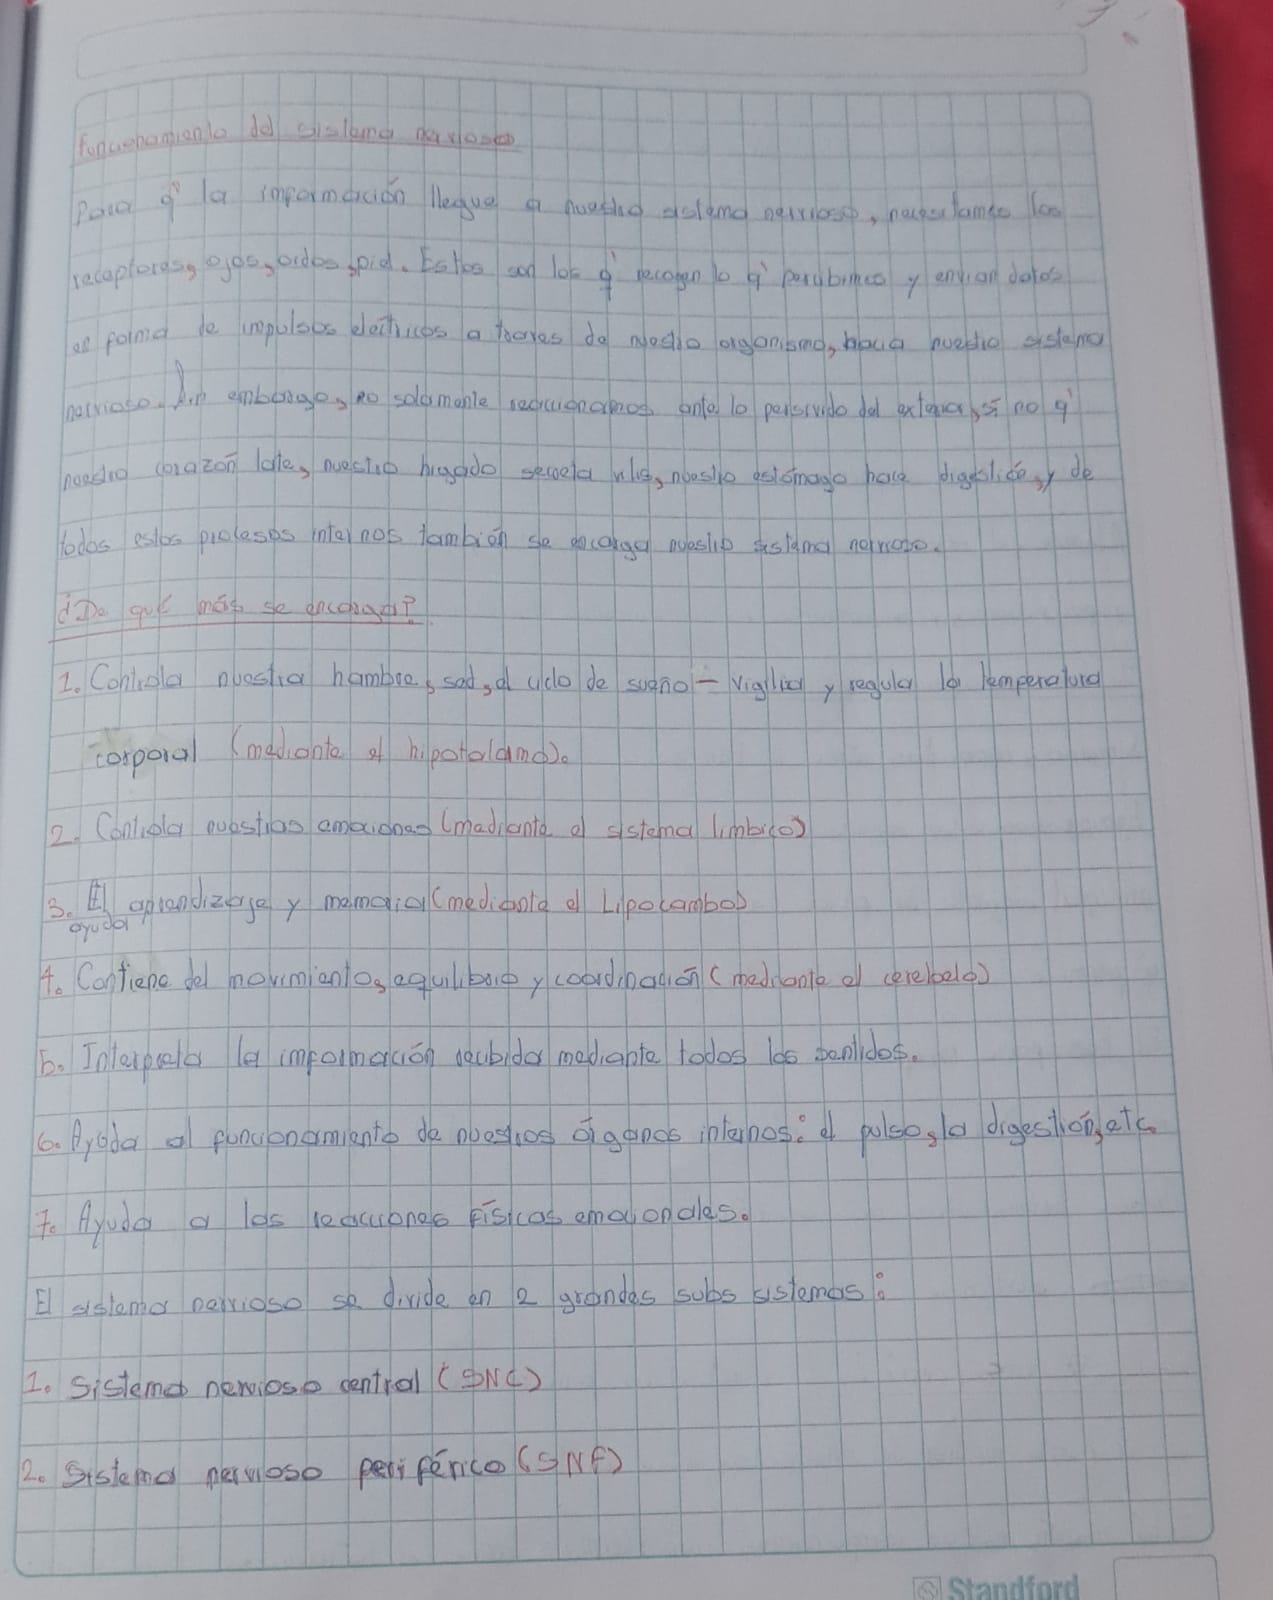 Funcionamiento del sistema nervioso
Para q' la imformación llegue a nuestro sistema nervioso, necesitamos los
receptores, ojos, oidos, piel. Estos son los q' recogen lo q' percibimos y envian datos
en forma de impulsos electricos a traves de nuestro organismo, hacia nuestro sistema
nervioso. Sin embargo, no solamente reaccionamos ante lo percivido del exterior, si no q'
nuestro corazón late, nuestro higado secreta vilis, nuestro estómago hace digestión, y de
todos estos procesos internos también se encarga nuestro sistema nervioso.
¿De qué más se encarga?
1. Controla nuestra hambre, sed, el ciclo de sueño - vigilia y regular la temperatura
corporal (mediante el hipotalamo).
2. Controla nuestras emociones (mediante el sistema limbico)
3. El aprendizaje y memoria (mediante el Lipocambo)
ayuda
4. Contiene del movimiento, equilibrio y coordinación (mediante el cerebelo)
5. Interpreta la imformación recibida mediante todos los sentidos.
6. Ayuda al funcionamiento de nuestros órganos internos: el pulso, la digestión, etc.
7. Ayuda a las reacciones físicas emocionales.
El sistema nervioso se divide en 2 grandes subs sistemas:
1. Sistema nervioso central (SNC)
2. Sistema nervioso periférico (SNP)
Standford